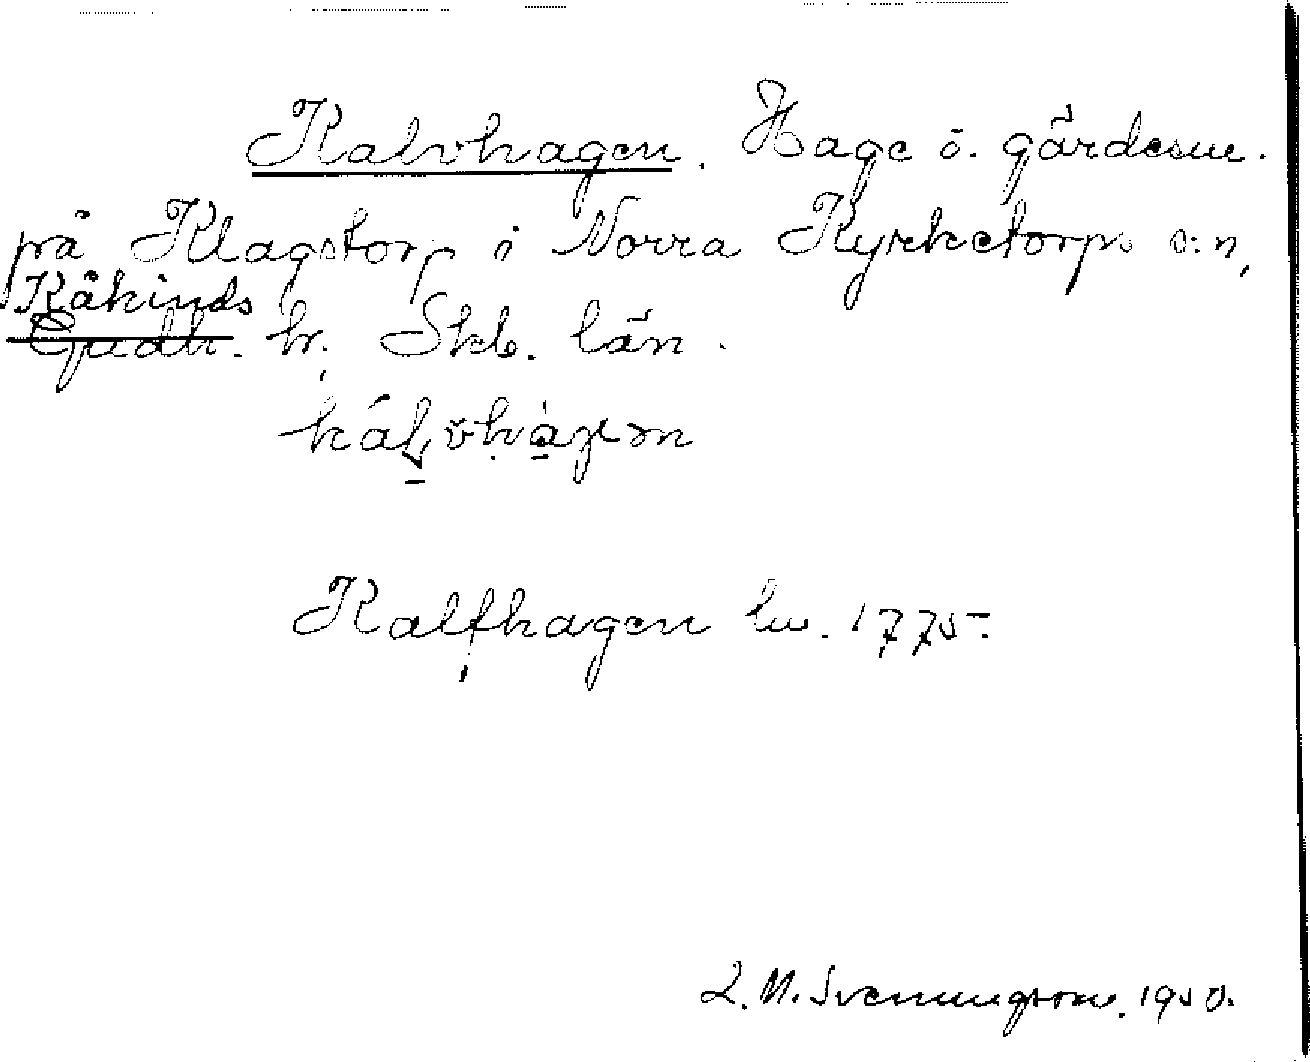 Kalvhagen. Hage ö. gärdesne.
på Klagstorp i Norra Kyrketorps s:n,
Kåkinds
Gudh. hr. Skb. län.
Kalfhagen lw. 1775.
L. M. Svenungsson. 1950.